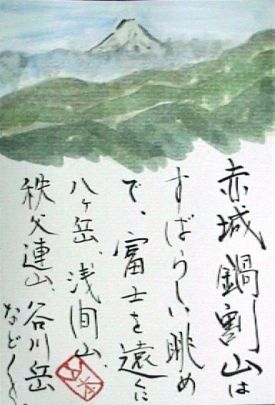 赤城鍋割山は
すばらしい眺め
で、富士を遠くに
八ヶ岳、浅間山、
秩父連山、谷川岳
など〱